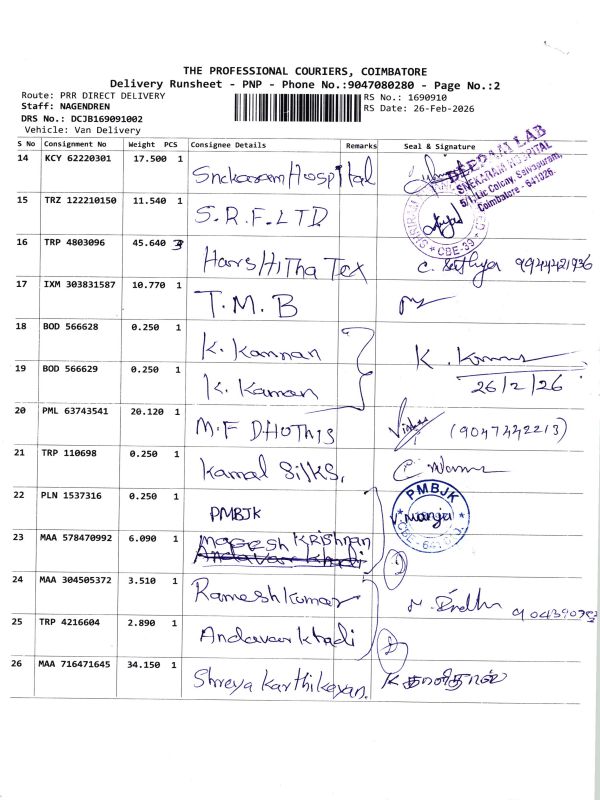 THE PROFESSIONAL COURIERS, COIMBATORE
Delivery Runsheet - PNP - Phone No.:9047080280 - Page No.:2
Route: PRR DIRECT DELIVERY
RS No.: 1690910
Staff: NAGENDREN
RS Date: 26-Feb-2026
DRS No.: DCJB169091002
Vehicle: Van Delivery
S No Consignment No Weight PCS Consignee Details Remarks Seal & Signature
14 KCY 62220301 17.500 1 Snekaram Hospital
DEEPAM LAB
SNEKARAM HOSPITAL
5/1, Lic Colony, Selvapuram,
Coimbatore - 641026.
15 TRZ 122210150 11.540 1 S.R.F. LTD
CBE-33
16 TRP 4803096 45.640 3 HarsHiTha Tex C. Sathya 9944421936
17 IXM 303831587 10.770 1 T.M.B
18 BOD 566628 0.250 1 K. Kannan
K. Kannan
19 BOD 566629 0.250 1 K. Kannan
26/2/26
20 PML 63743541 20.120 1 M.F DHOTHIS (9047442213)
21 TRP 110698 0.250 1 Kamal Silks.
22 PLN 1537316 0.250 1 PMBJK
PMBJK
23 MAA 578470992 6.090 1 Magesh Krishnan
Andavar khadi
24 MAA 304505372 3.510 1 Ramesh Kumar
25 TRP 4216604 2.890 1 Andavar khadi
26 MAA 716471645 34.150 1 Shreya Karthikeyan.